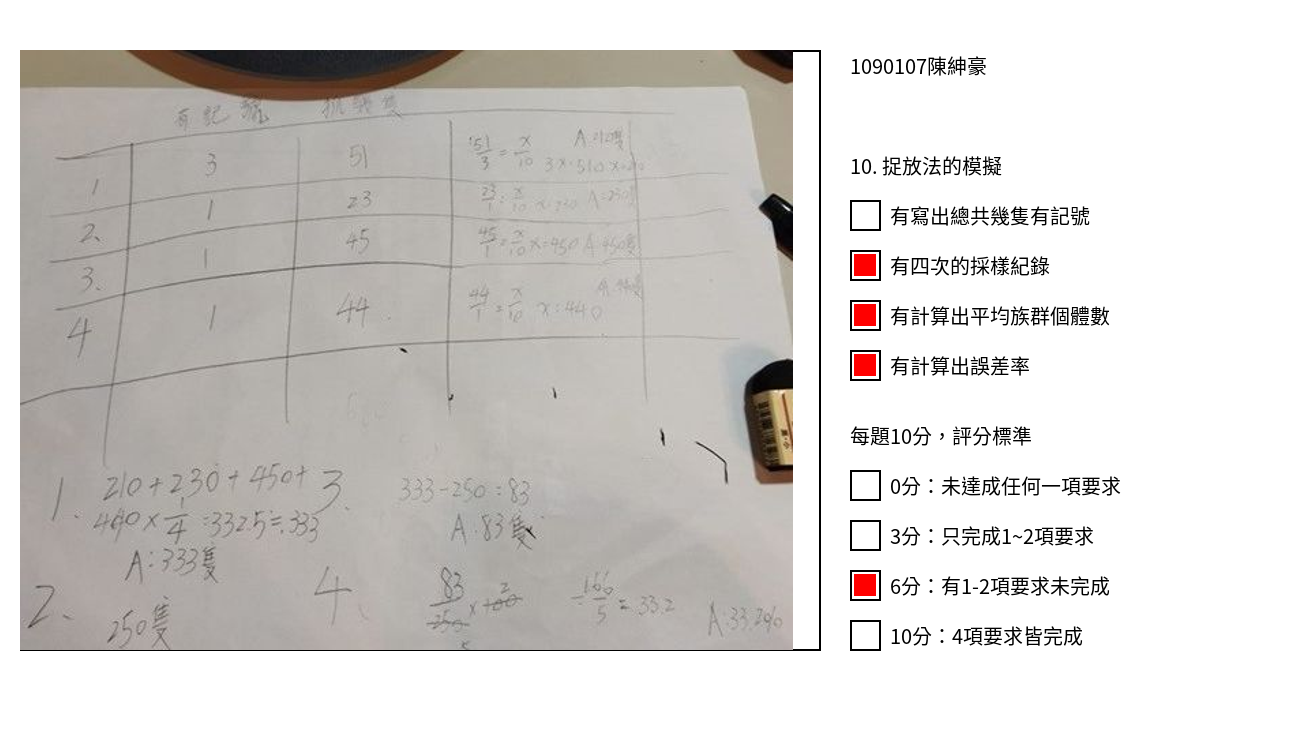 有記號
1 3 51 51/3 = x/10 3x=510 A:210隻
2. 1 23 23/1 = x/10 x=230 A:230隻
3. 1 45 45/1 = x/10 x=450 A:450隻
4 1 44 44/1 = x/10 x=440
1. 210+230+450+
440×1/4=332.5≒333
A:333隻
2. 250隻
3. 333-250=83
A:83隻
4. 83/250×100 2 5 166/5=33.2 A:33.2%
1090107陳紳豪
10. 捉放法的模擬
有寫出總共幾隻有記號
有四次的採樣紀錄
有計算出平均族群個體數
有計算出誤差率
每題10分，評分標準
0分：未達成任何一項要求
3分：只完成1~2項要求
6分：有1-2項要求未完成
10分：4項要求皆完成